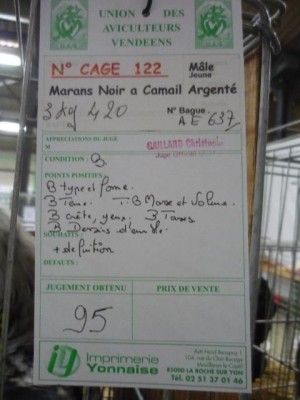 UNION DES
AVICULTEURS
VENDEENS
N° CAGE 122 Mâle
Jeune
Marans Noir a Camail Argenté
3 kg 420 N° Bague
A E 637
APPRECIATIONS DU JUGE
M
CONDITION : B
POINTS POSITIFS
B type et forme.
B Tenue. T.B Masse et Volume.
B crête, yeux. B Tarses
B Dessin d'ens
SOUHAITS :
+ définition
DEFAUTS :
JUGEMENT OBTENU PRIX DE VENTE
95
Imprimerie
Yonnaise
85000 LA ROCHE SUR YON
Tél. 02 51 37 01 46